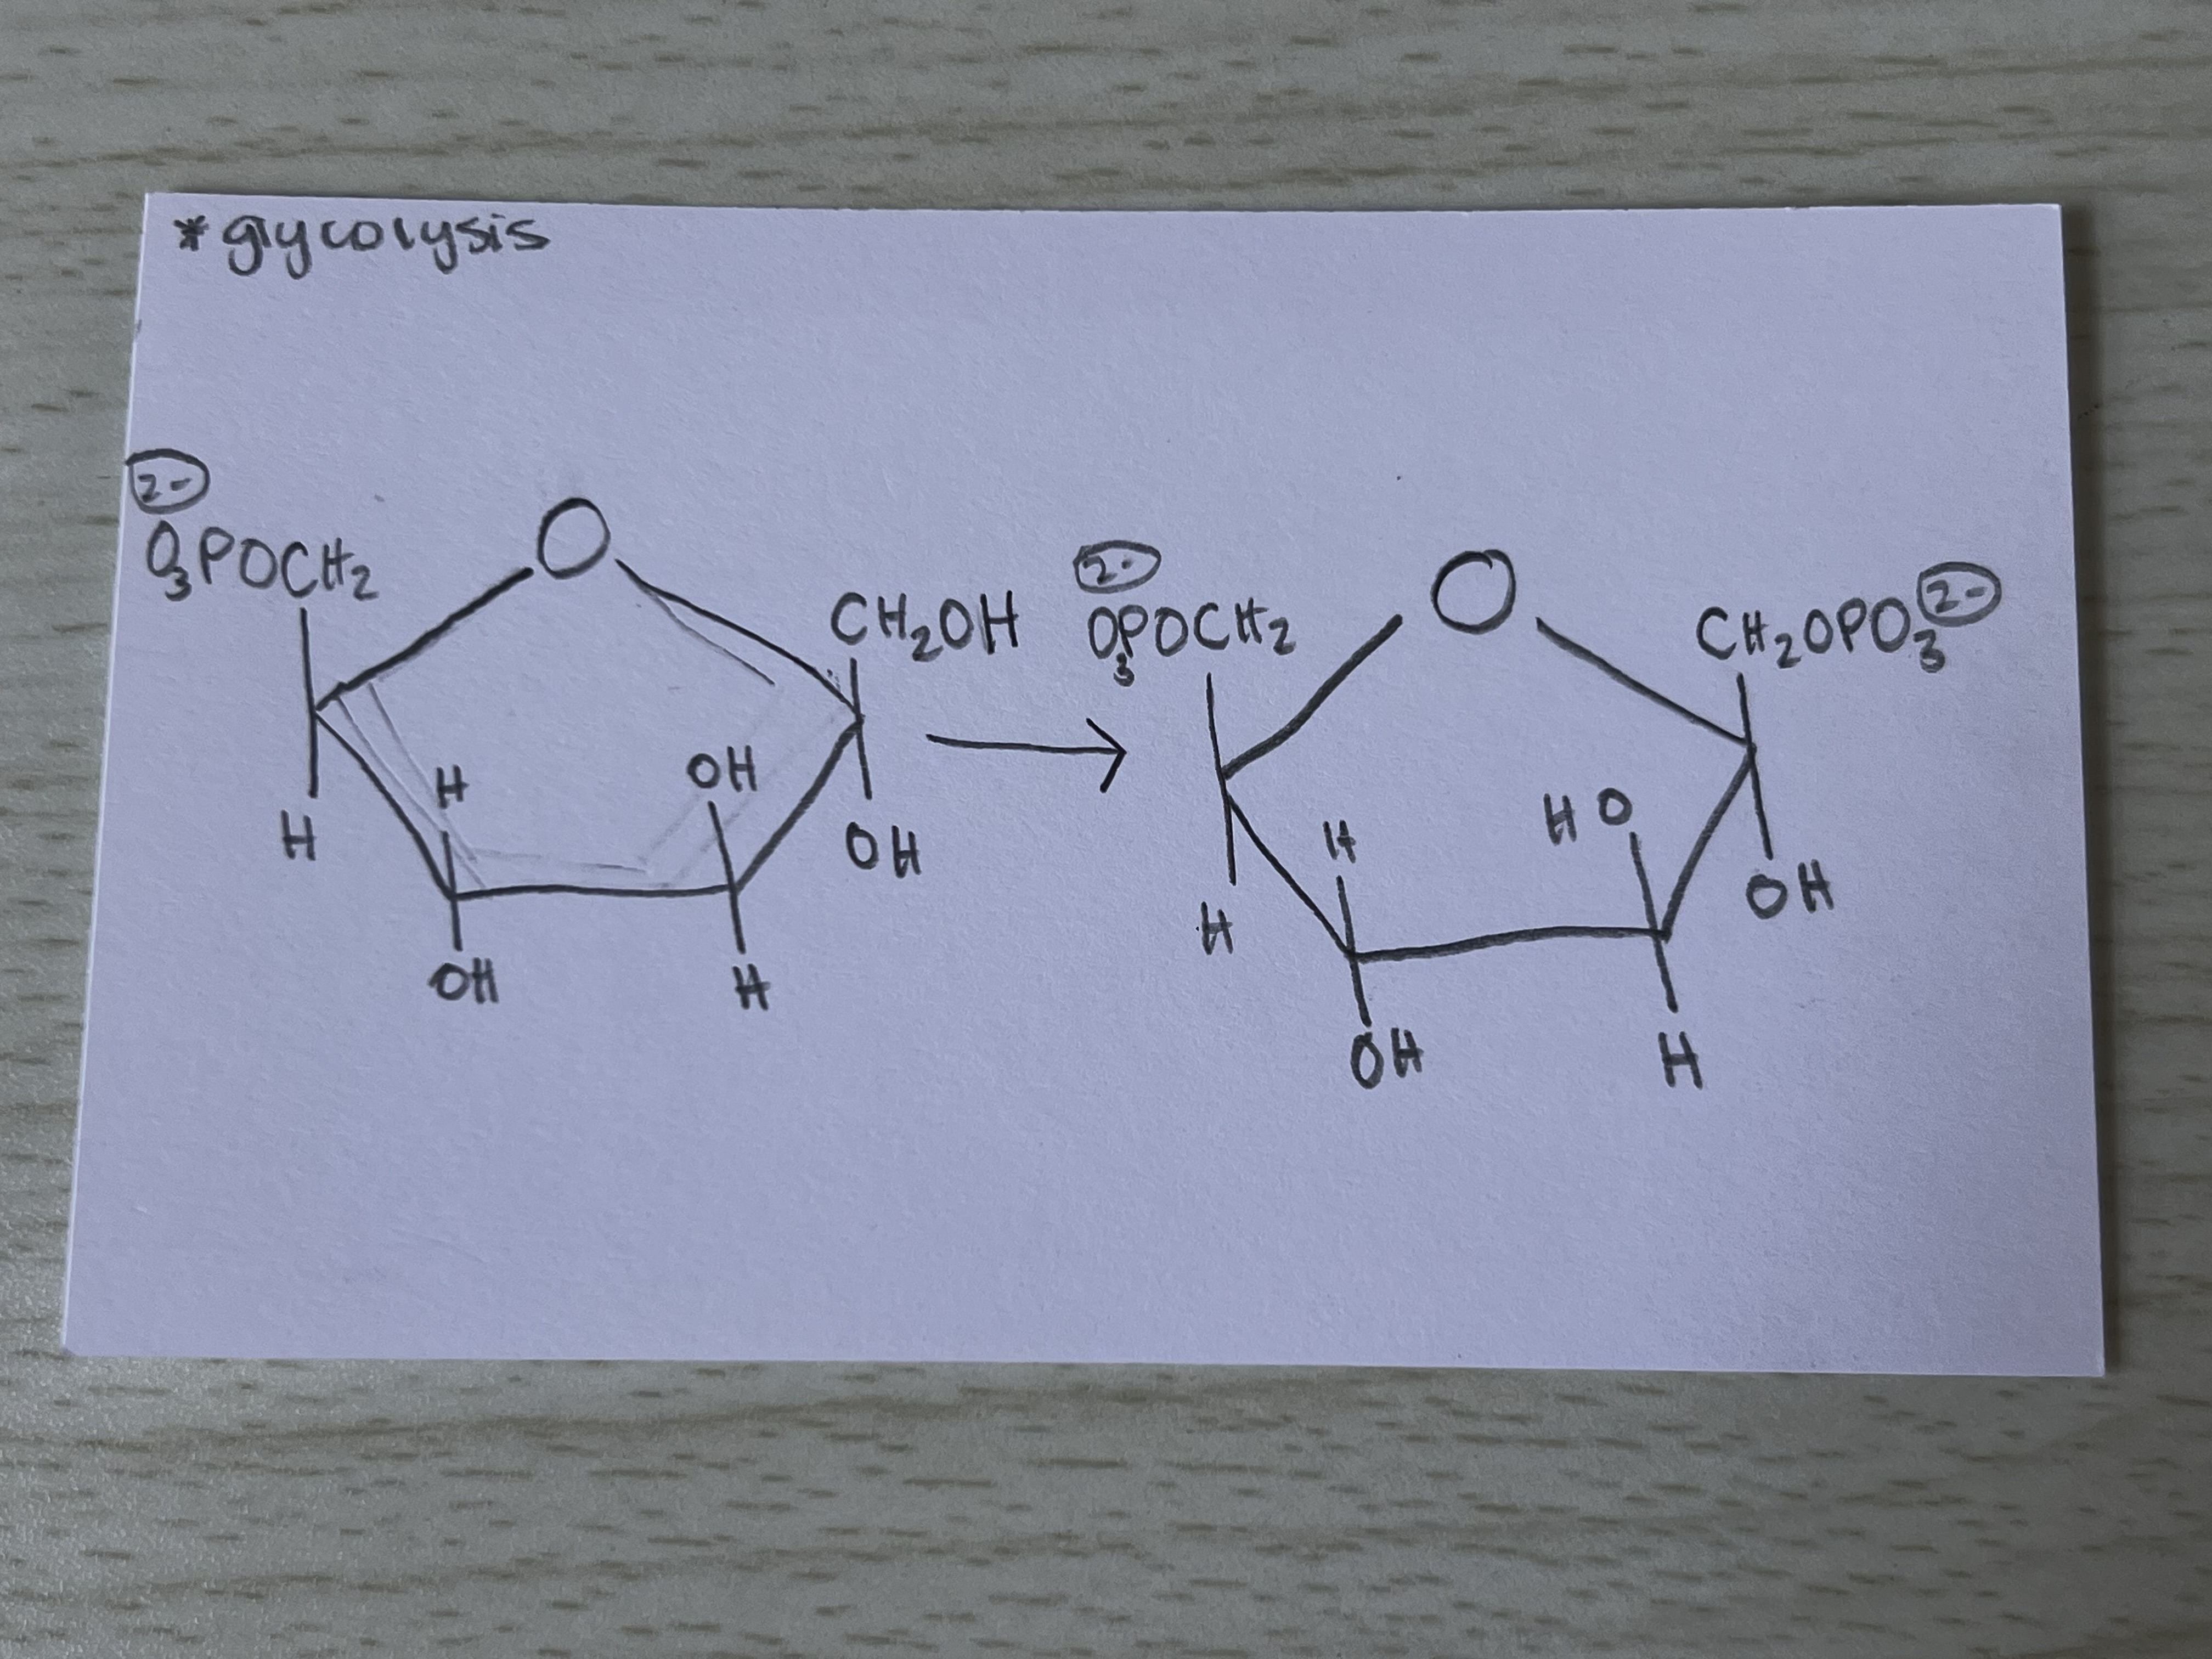 *glycolysis
2-
O3POCH2
O
CH2OH
H
H
OH
OH
OH
H
2-
O3POCH2
O
CH2OPO3 2-
H
H
HO
OH
OH
H